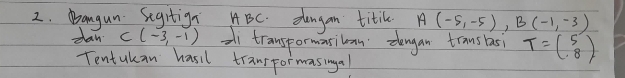 2. Bangun Segitiga ABC. dengan titik. A (-5,-5), B (-1,-3)
dan C (-3,-1) di transformasikan dengan translasi T = (5 8)
Tentukan hasil transformasinya!